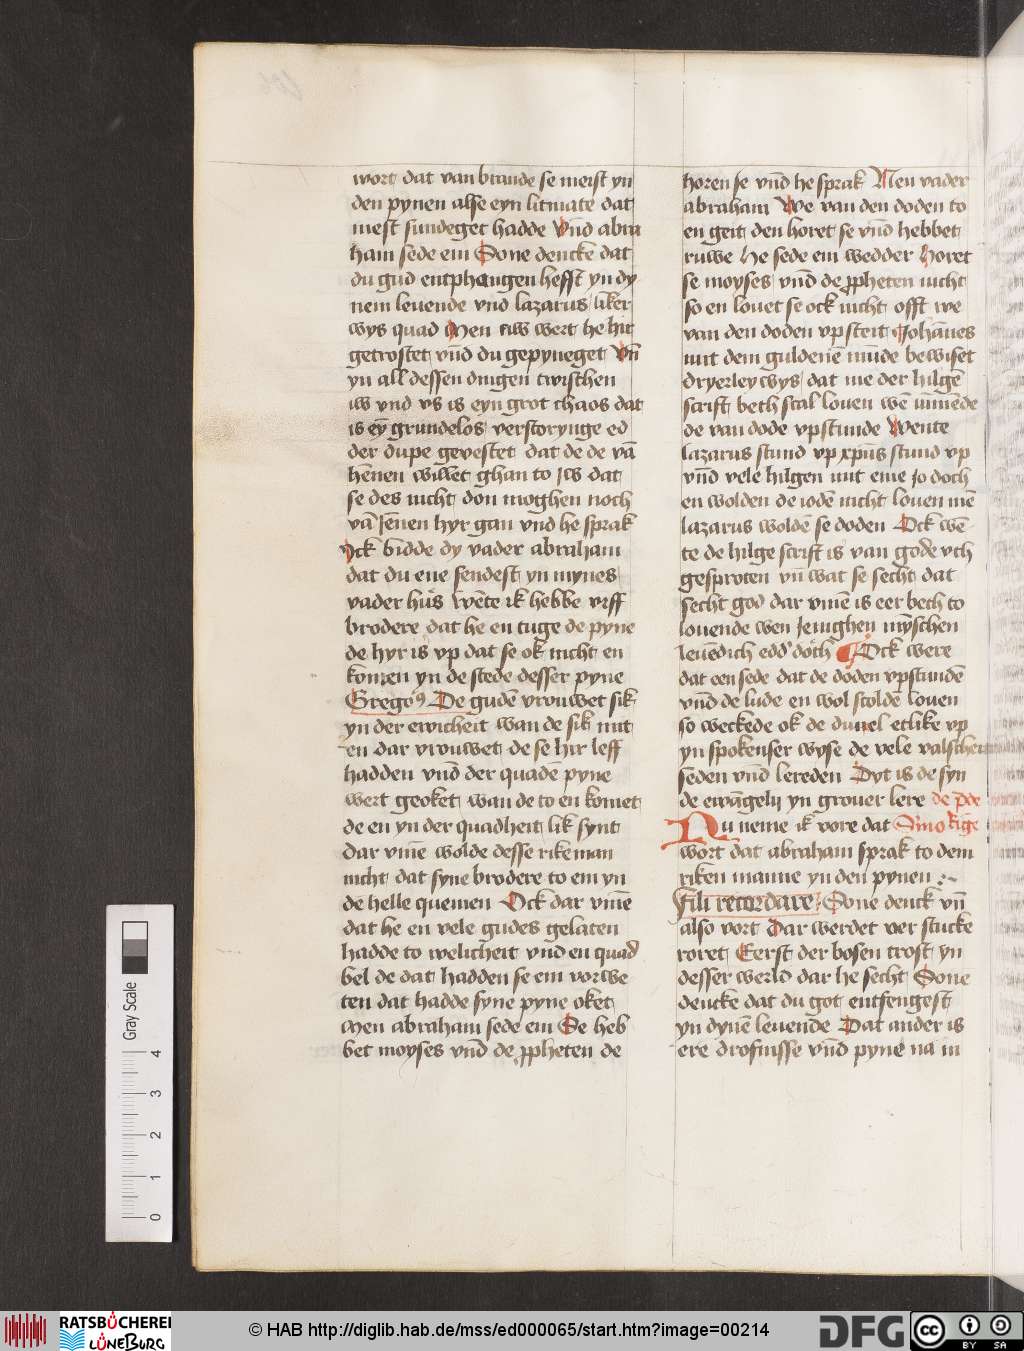 wort dat van brande se meist yn
den pynen alse eyn litmate dat
mest sundeget hadde Vnd abra
ham sede em Sone dencke dat
du gud entphangen hefft yn dy
nem leuende vnd lazarus liker
wys quad Men nw wert he hir
getrostet vnd du gepyneget Vn̄
yn all dessen dingen twisschen
iw vnd vs is eyn grot chaos dat
is eȳ grundelos verstorynge ed
der dupe gevestet dat de de vā
hēnen willet ghan to Jw dat
se des nicht don moghen noch
vā Jēnen hyr gan vnd he sprak
Ick bidde dy vader abraham
dat du ene sendest yn mynes
vader hus wēte ik hebbe viff
brodere dat he en tuge de pyne
de hyr is vp dat se ok nicht en
komen yn de stede desser pyne
Gregoꝰ De gudē vrouwet sik
yn der ewicheit wan de sik nut
en dar vrouwet de se hir leff
hadden vnd der quadē pyne
wert geoket wan de to en komet
de en yn der quadheit lik synt
Dar vm̄e wolde desse rikeman
nicht dat syne brodere to em yn
de helle quemen Ock dar vm̄e
dat he en vele gudes gelaten
hadde to welicheit vnd en quad
bel de dat hadden se em vorwe
ten dat hadde syne pyne oket
Men abraham sede em Se heb
bet moyses vnd de ꝓpheten de
horen se vnd he sprak Nen vader
abraham We van den doden to
en geit den horet se vnd hebbet
ruwe He sede em wedder Horet
se moyses vnd de ꝓpheten nicht
so en louet se ock nicht offt we
van den doden vpsteit Johānes
mit dem guldenē mūde bewiset
dryerley wys dat me der hilgē
scrift beth scal louen wē iūmēde
de van dode vpstunde Wente
lazarus stund vp xp̄us stund vp
vnd vele hilgen mit eme Jo doch
en wolden de iodē nicht louen mē
lazarus woldē se doden Ock wē
te de hilge scrift is van gode vth
gesproten vn̄ wat se secht dat
secht god dar vm̄e is eer beth to
louende wen Jenighen mȳschen
leuēdich edd' doth Ock were
dat een sede dat de doden vpstundē
vnd de lude en wol scoldē louen
so weckede ok de duuel etlike vp
yn spokenser wyse de vele valschen
seden vnd lereden Dyt is de syn
de ewāgelij yn grouer lere de p̄de
Nu neme ik vore dat
wort dat abraham sprak to dem
riken manne yn den pynen
Fili recordare Sone denck vn̄
also vort Dar werdet ver stucke
roret Eerst der bosen trost yn
desser werld dar he secht Sone
dencke dat du got entfengest
yn dynē leuende Dat ander is
ere drofnisse vnd pyne na in
Gray Scale
0 1 2 3 4
RATSBÜCHEREI
LÜNEBURG
© HAB http://diglib.hab.de/mss/ed000065/start.htm?image=00214
DFG
cc
BY SA